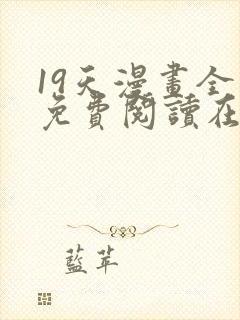 19天漫畫全
免費閱讀在
藍苹